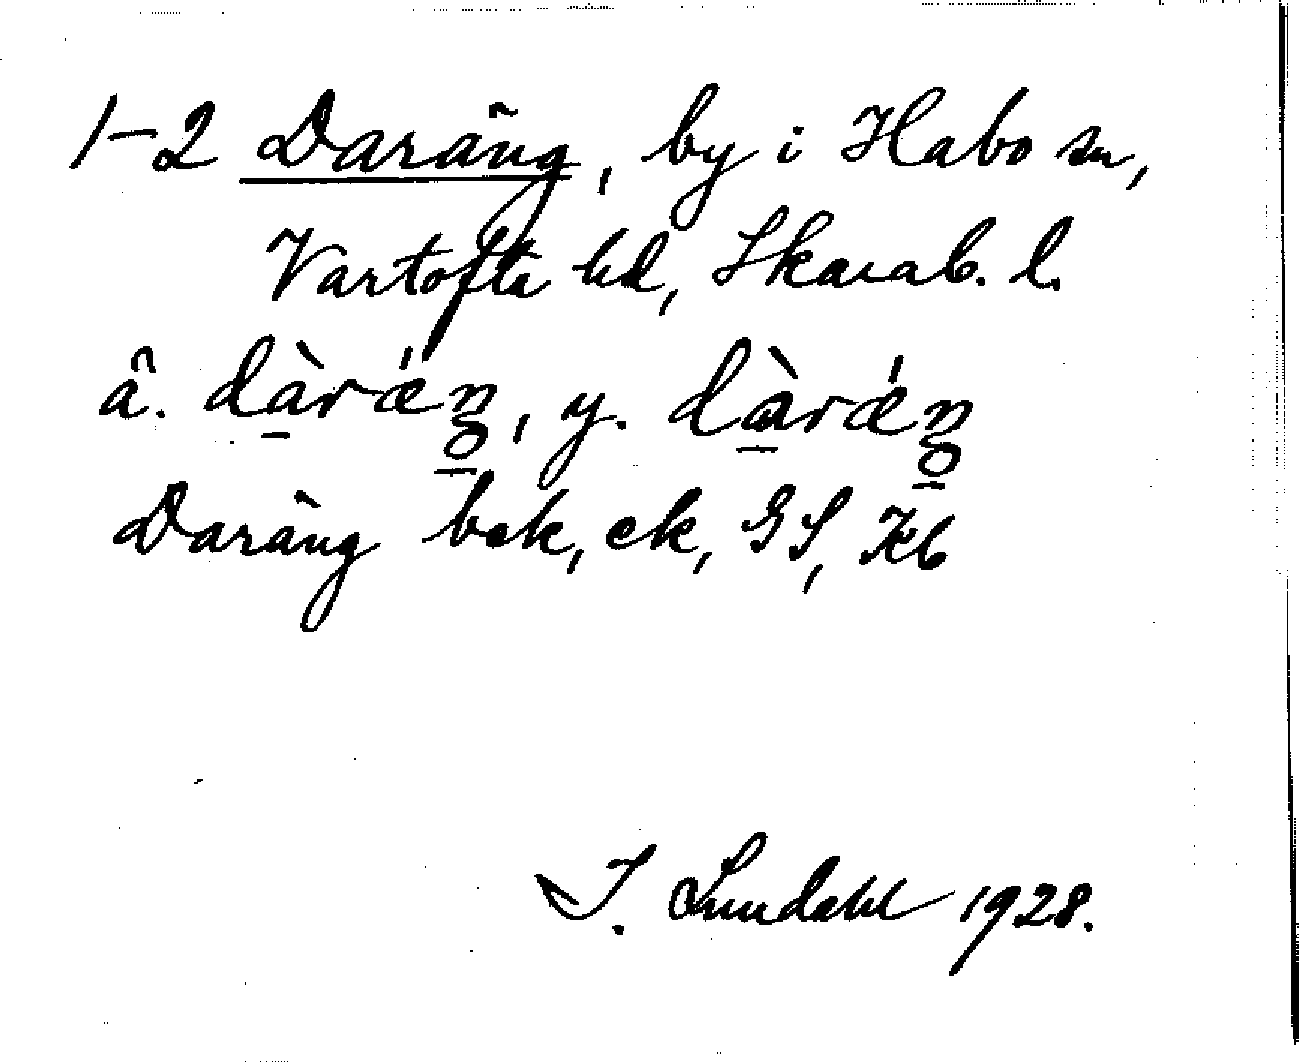 1-2 Daräng, by i Habo sn,
Vartofta hd, Skarab. l.
ä. dàrǽŋ, y. dàrǽŋ
Daräng bok, ek, GS, Kb
I. Lundahl 1928.